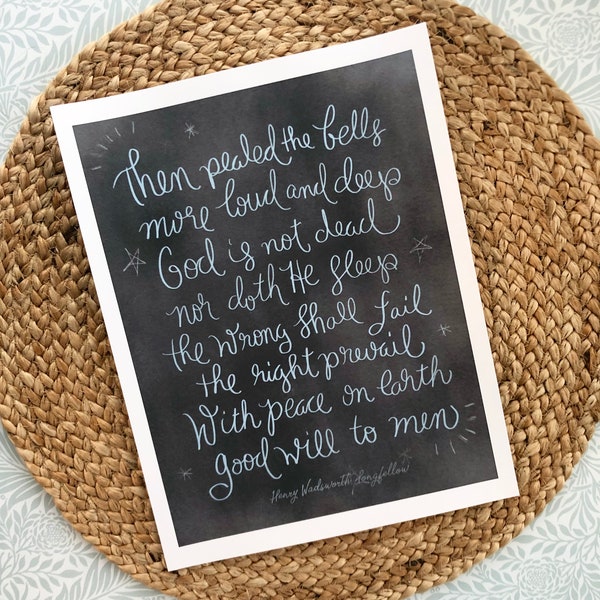 Then pealed the bells
more loud and deep
God is not dead
nor doth He sleep
the wrong shall fail
the right prevail
With peace on Earth
good will to men
Henry Wadsworth Longfellow